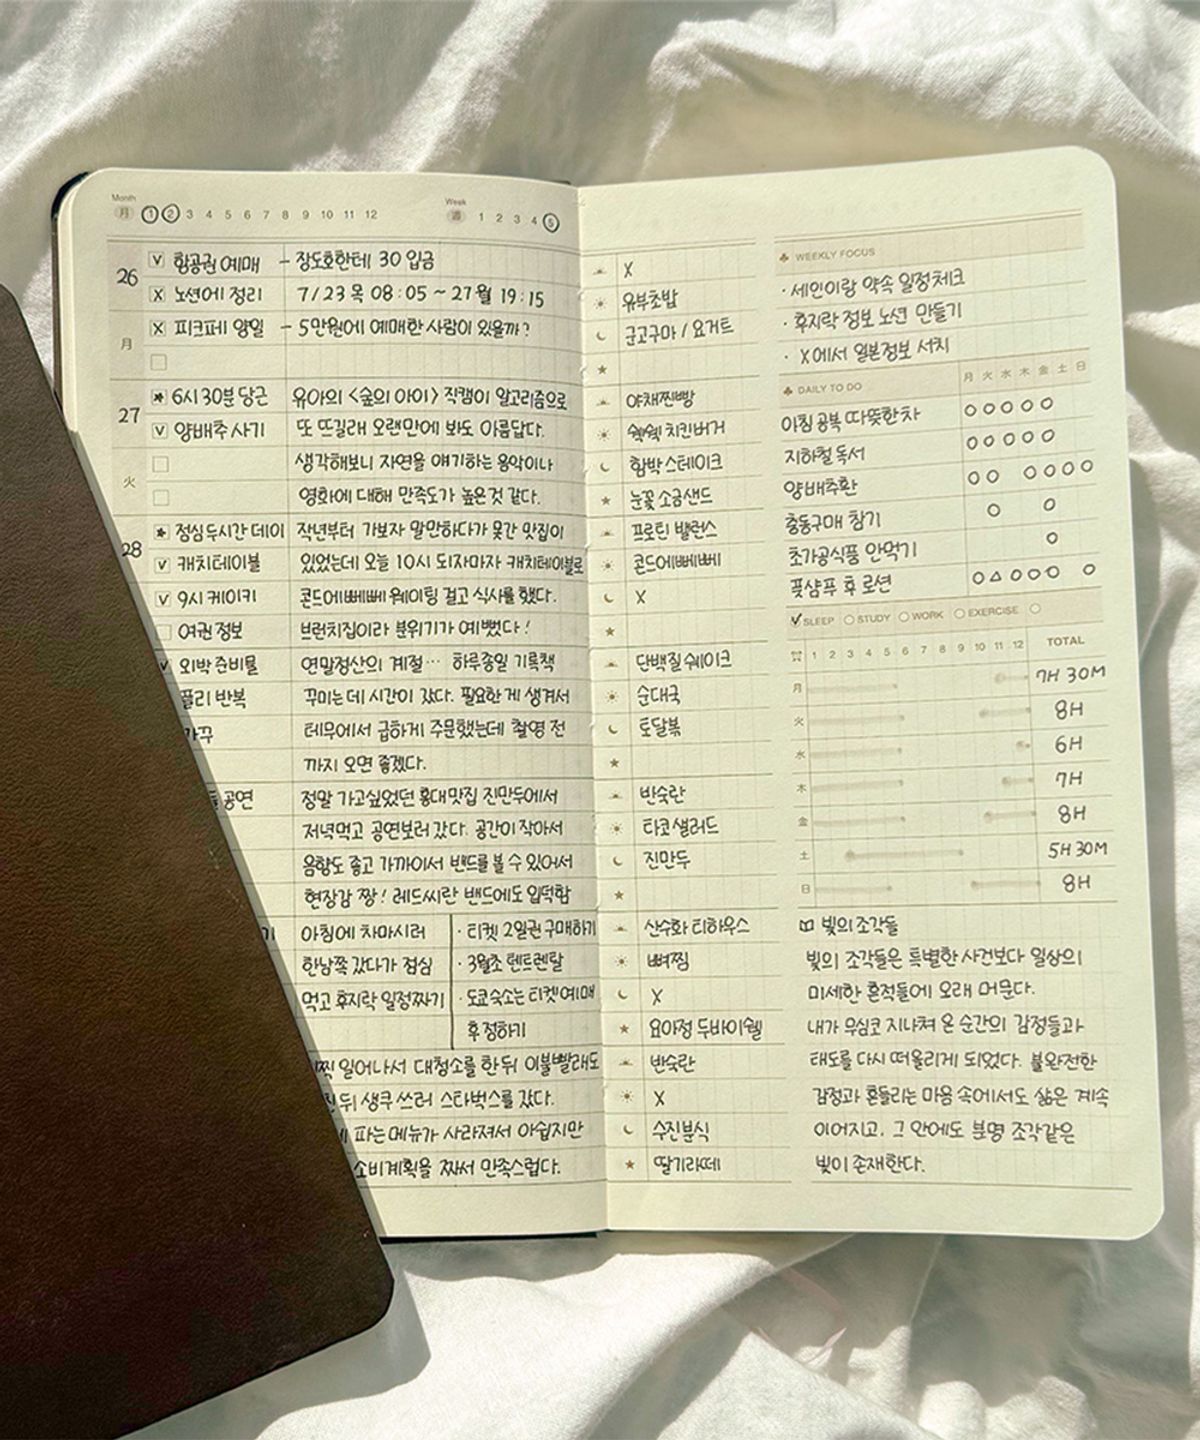 Month
月 1 2 3 4 5 6 7 8 9 10 11 12
Week
週 1 2 3 4 5
26
月
V 항공권 예매 - 장도호한테 30 입금
X 노션에 정리 7/23 목 08:05 ~ 27월 19:15
X 피크페 양일 - 5만원에 예매한 사람이 있을까?
27
火
★ 6시 30분 당근 유아의 <숲의 아이> 직캠이 알고리즘으로
V 양배추 사기 또 뜨길래 오랜만에 봐도 아름답다.
생각해보니 자연을 얘기하는 음악이나
영화에 대해 만족도가 높은것 같다.
28
★ 점심 두시간 데이 작년부터 가보자 말만하다가 못간 맛집이
V 캐치테이블 있었는데 오늘 10시 되자마자 캐치테이블로
V 9시 케이키 콘드에뻬뻬 웨이팅 걸고 식사를 했다.
여권 정보 브런치집이라 분위기가 예뻤다!
V 외박 준비물 연말정산의 계절… 하루종일 기록책
플리 반복 꾸미는데 시간이 갔다. 필요한 게 생겨서
테무에서 급하게 주문했는데 촬영 전
까지 오면 좋겠다.
공연 정말 가고싶었던 홍대맛집 진만두에서
저녁먹고 공연보러 갔다. 공간이 작아서
음향도 좋고 가까이서 밴드를 볼 수 있어서
현장감 짱! 레드씨란 밴드에도 입덕함
아침에 차마시러
한남쪽 갔다가 점심
먹고 후지락 일정짜기
· 티켓 2일권 구매하기
· 3월초 텐트렌탈
· 도쿄숙소는 티켓예매
후 정하기
일어나서 대청소를 한 뒤 이불빨래도
뒤 생쿠 쓰러 스타벅스를 갔다.
파는 메뉴가 사라져서 아쉽지만
소비계획을 짜서 만족스럽다.
X
유부초밥
군고구마 / 요거트
야채찐빵
쉑쉑 치킨버거
함박 스테이크
눈꽃 소금샌드
프로틴 밸런스
콘드에뻬뻬
X
단백질 쉐이크
순대국
토달볶
반숙란
타코샐러드
진만두
산수화 티하우스
뼈찜
X
요아정 두바이쉘
반숙란
X
수진분식
딸기라떼
WEEKLY FOCUS
· 세인이랑 약속 일정체크
· 후지락 정보 노션 만들기
· X에서 일본정보 서치
DAILY TO DO 月 火 水 木 金 土 日
아침 공복 따뜻한 차 O O O O O
지하철 독서 O O O O O
양배추환 O O O O O O
충동구매 참기 O O
초가공식품 안먹기 O
풋샴푸 후 로션 O △ O O O O
V SLEEP STUDY WORK EXERCISE
1 2 3 4 5 6 7 8 9 10 11 12 TOTAL
月 7H 30M
火 8H
水 6H
木 7H
金 8H
土 5H 30M
日 8H
빛의 조각들
빛의 조각들은 특별한 사건보다 일상의
미세한 흔적들에 오래 머문다.
내가 무심코 지나쳐 온 순간의 감정들과
태도를 다시 떠올리게 되었다. 불완전한
감정과 흔들리는 마음 속에서도 삶은 계속
이어지고, 그 안에도 분명 조각같은
빛이 존재한다.